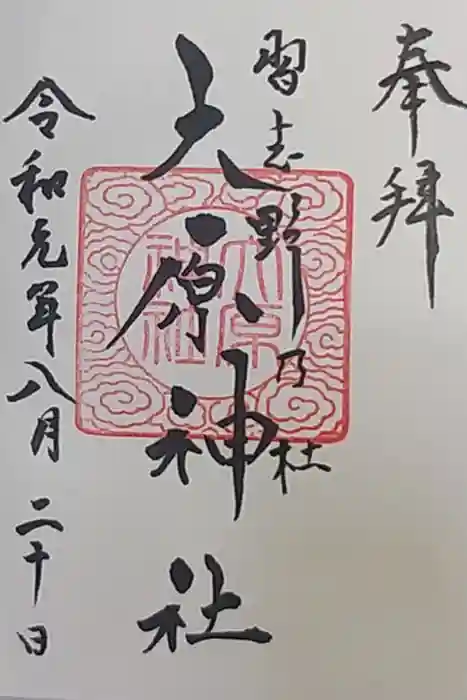 奉拝
習志野乃杜
大原神社
大原
神社
令和元年八月二十日